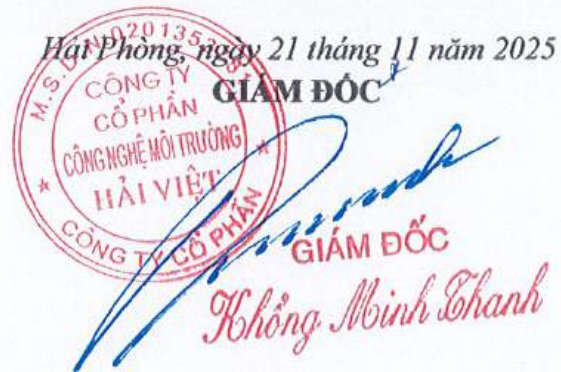 Hải Phòng, ngày 21 tháng 11 năm 2025
GIÁM ĐỐC
M.S.D.N:
CÔNG TY
CỔ PHẦN
CÔNG NGHỆ MÔI TRƯỜNG
HẢI VIỆT
CÔNG TY CỔ PHẦN
GIÁM ĐỐC
Khổng Minh Thanh